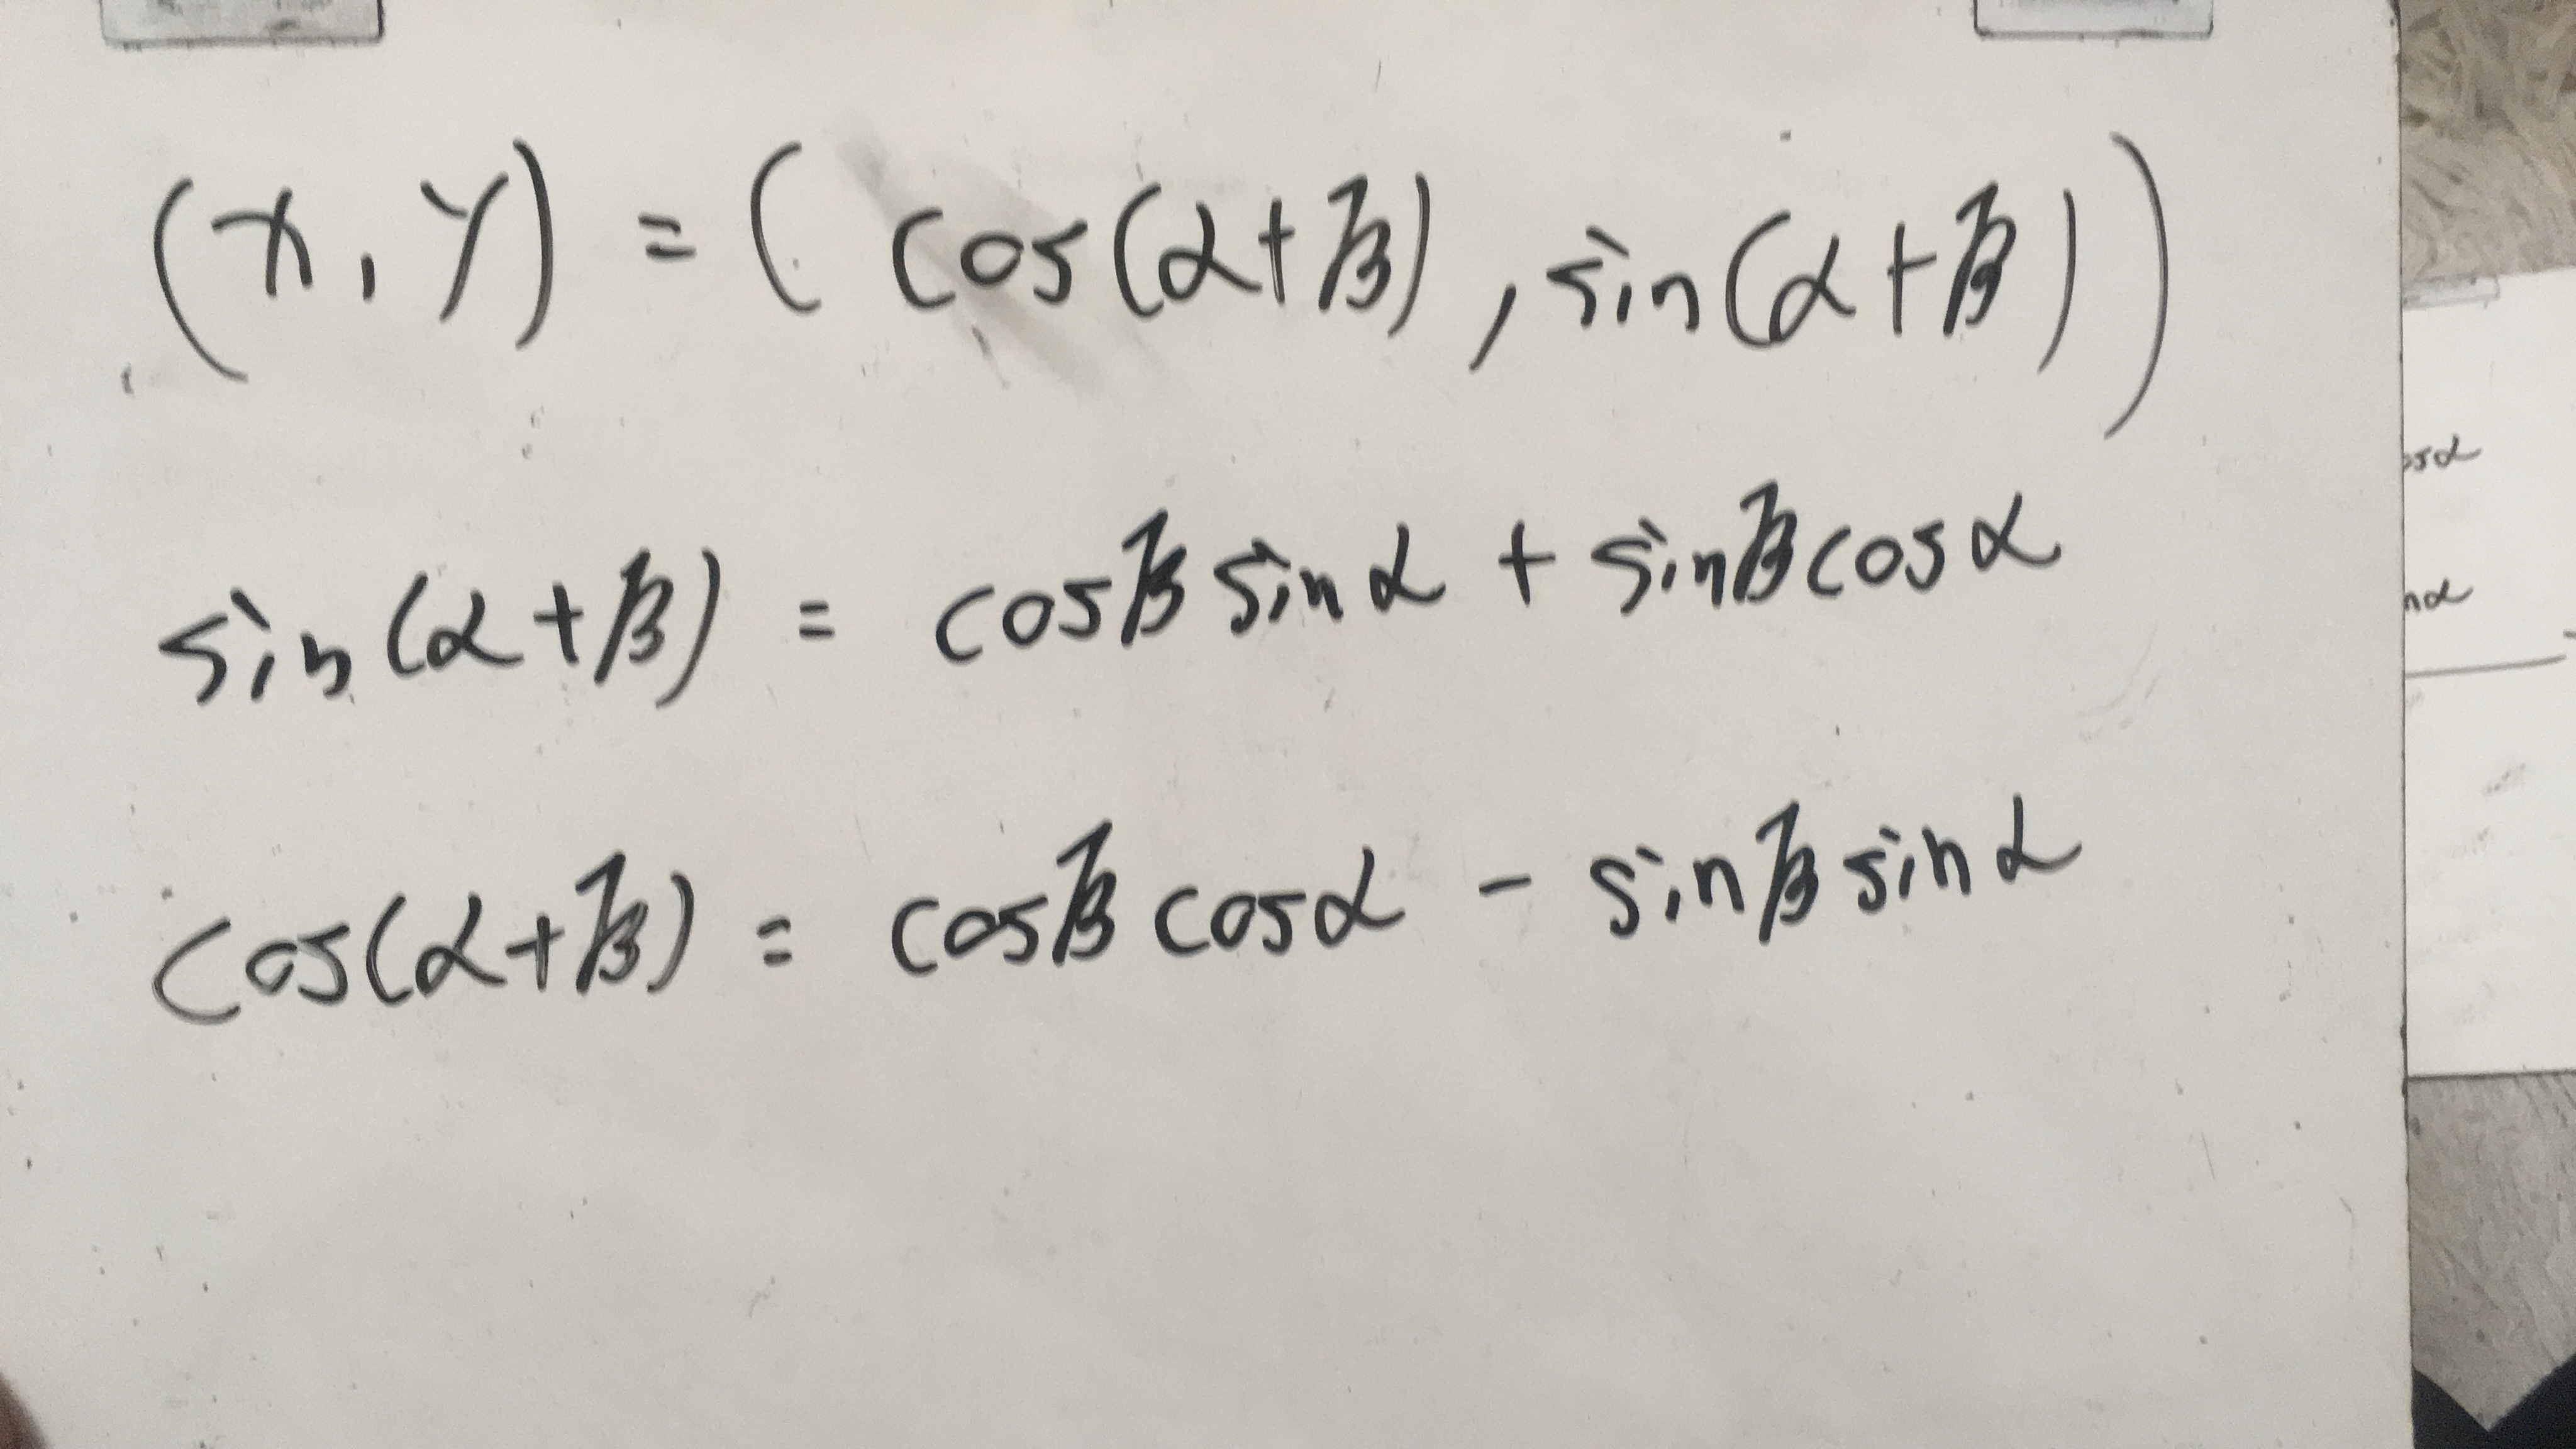 (x, y) = ( cos(α+β), sin(α+β))
sin(α+β) = cosβ sinα + sinβ cosα
cos(α+β) = cosβ cosα - sinβ sinα